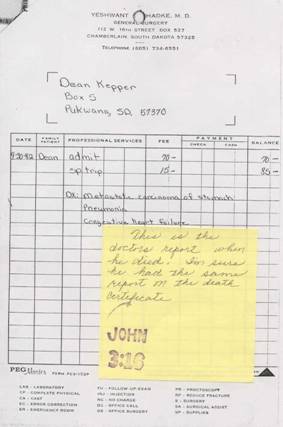 YESHWANT HADKE, M. D.
GENERAL SURGERY
112 W. 16TH STREET BOX 527
CHAMBERLAIN, SOUTH DAKOTA 57325
TELEPHONE (605) 734-6551
Dean Kepper
Box 5
Pukwana, SD, 57370
DATE FAMILY PATIENT PROFESSIONAL SERVICES FEE PAYMENT CHECK CASH BALANCE
Dean admit 70- 70-
trip 15- 85-
DX: Metastatic carcinoma of stomach
Pneumonia
Congestive Heart Failure
This is the
doctors report when
he died. I'm sure
he had the same
report on the death
certificate
JOHN
3:16
PEG
LAB - LABORATORY
CP - COMPLETE PHYSICAL
CA - CAST
EC - ERROR CORRECTION
ER - EMERGENCY ROOM
FU - FOLLOW-UP EXAM
INJ - INJECTION
NC - NO CHARGE
OC - OFFICE CALL
OS - OFFICE SURGERY
PR - PROCTOSCOPY
RF - REDUCE FRACTURE
S - SURGERY
SA - SURGICAL ASSIST
SUPPLIES